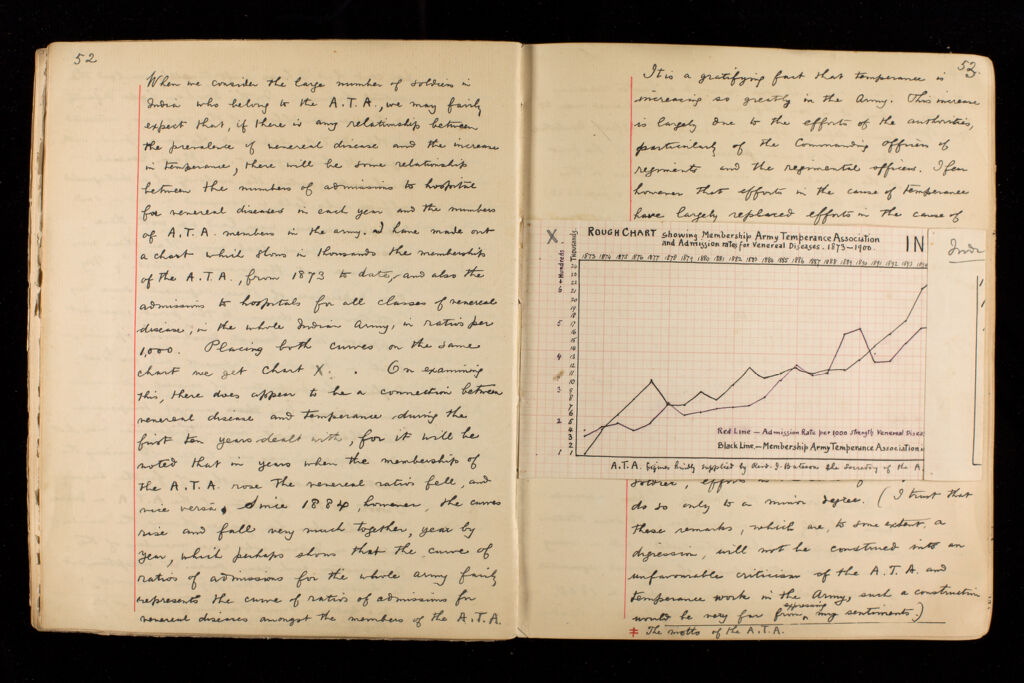 52
When we consider the large number of soldiers in
India who belong to the A.T.A., we may fairly
expect that, if there is any relationship between
the prevalence of venereal disease and the increase
in temperance, there will be some relationship
between the numbers of admissions to hospital
for venereal diseases in each year and the numbers
of A.T.A. members in the army. I have made out
a chart which shows in thousands the membership
of the A.T.A., from 1873 to date, and also the
admissions to hospitals for all classes of venereal
disease, in the whole Indian Army, in ratios per
1,000. Placing both curves on the same
chart we get Chart X. . On examining
this, there does appear to be a connection between
venereal disease and temperance during the
first ten years dealt with, for it will be
noted that in years when the membership of
the A.T.A. rose the venereal ratios fell, and
vice versa. Since 1884, however, the curves
rise and fall very much together, year by
year, which perhaps shows that the curve of
ratios of admissions for the whole army fairly
represents the curve of ratios of admissions for
venereal diseases amongst the members of the A.T.A.
53.
It is a gratifying fact that temperance is
increasing so greatly in the Army. This increase
is largely due to the efforts of the authorities,
particularly of the Commanding Officers of
regiments and the regimental officers. I fear
however that efforts in the cause of temperance
have largely replaced efforts in the cause of
X. ROUGH CHART showing Membership Army Temperance Association
and Admission rates for Venereal Diseases. 1873–1900.
IN
Hundreds
Thousands
1873 1874 1875 1876 1877 1878 1879 1880 1881 1882 1883 1884 1885 1886 1887 1888 1889 1890 1891 1892 1893
Red Line – Admission Rate per 1000 Strength Venereal Diseas
Black Line – Membership Army Temperance Association
A.T.A. figures kindly supplied by Revd. J. Bateson the Secretary of the A.
soldier, efforts
do so only to a minor degree. (I trust that
these remarks, which are, to some extent, a
digression, will not be construed into an
unfavourable criticism of the A.T.A. and
temperance work in the Army, such a construction
would be very far from expressing my sentiments.)
‡ The motto of the A.T.A.